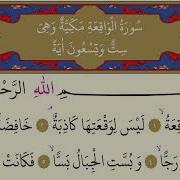 سُورَةُ الْوَاقِعَةِ مَكِّيَّةٌ وَهِيَ
سِتٌّ وَتِسْعُونَ اٰيَةً
ـمِ اللّٰهِ الرَّحْ
قِعَةُ ۙ ﴿١﴾ لَيْسَ لِوَقْعَتِهَا كَاذِبَةٌ ۘ ﴿٢﴾ خَافِضَ
رَجًّا ۙ ﴿٤﴾ وَبُسَّتِ الْجِبَالُ بَسًّا ۙ ﴿٥﴾ فَكَانَتْ